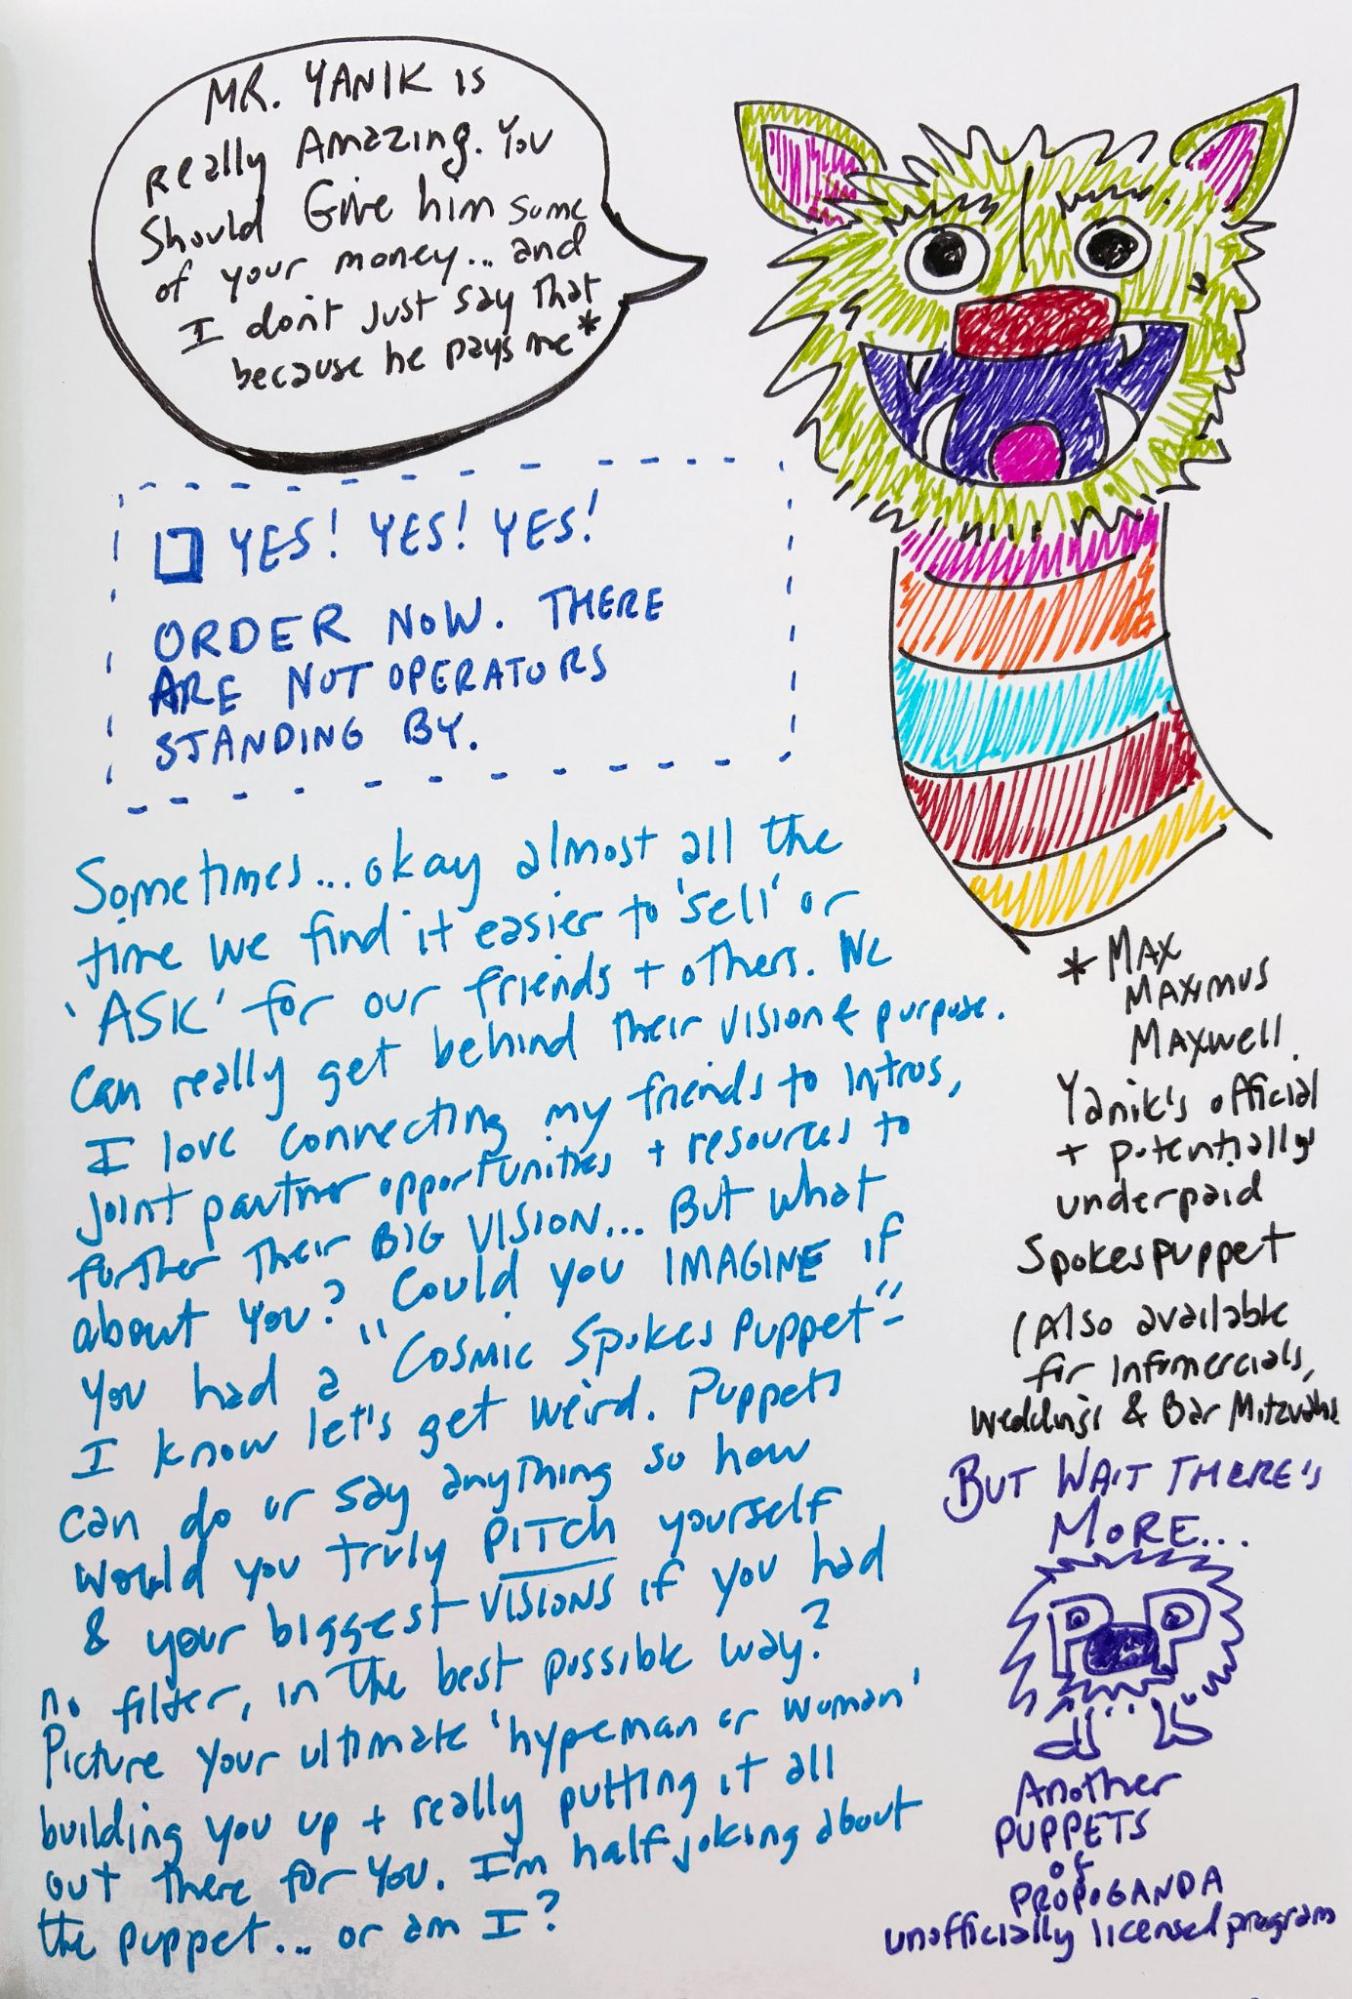 MR. YANIK IS
really Amazing. You
Should Give him some
of your money... and
I don't just say that
because he pays me*
YES! YES! YES!
ORDER NOW. THERE
ARE NOT OPERATORS
STANDING BY.
Sometimes... okay almost all the
time we find it easier to 'sell' or
'ASK' for our friends + others. We
can really get behind their vision & purpose.
I love connecting my friends to intros,
joint partner opportunities + resources to
further their BIG VISION... But what
about you? Could you IMAGINE if
you had a "Cosmic Spokes Puppet"-
I know let's get weird. Puppets
can do or say anything so how
would you truly PITCH yourself
& your biggest VISIONS if you had
no filter, in the best possible way?
Picture your ultimate 'hypeman or woman'
building you up + really putting it all
out there for you. I'm half joking about
the puppet... or am I?
* MAX
MAXIMUS
MAXWELL.
Yanik's official
+ potentially
underpaid
Spokespuppet
(Also available
for Infomercials,
weddings & Bar Mitzvahs
BUT WAIT THERE'S
MORE...
P P
Another
PUPPETS
of
PROPOGANDA
unofficially licensed program